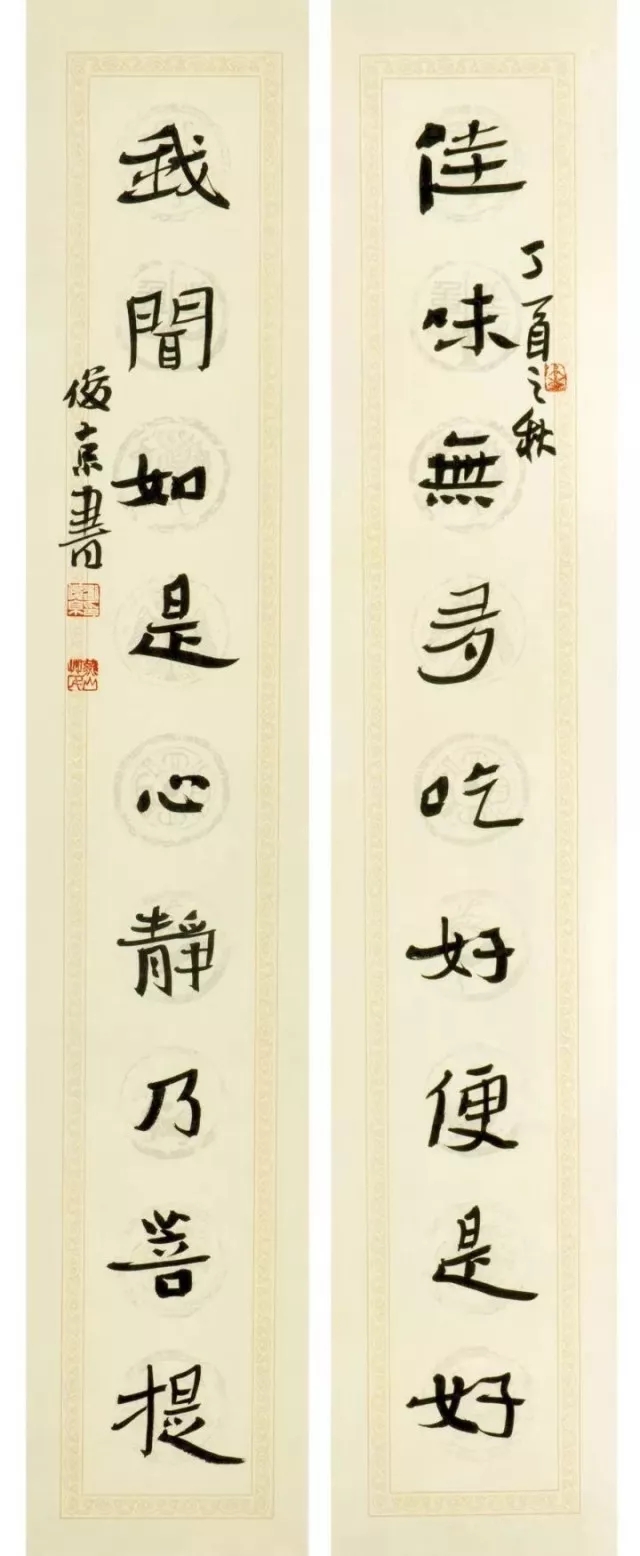 佳味無吃好便是好
丁酉之秋
我聞如是心靜乃菩提
俊京書